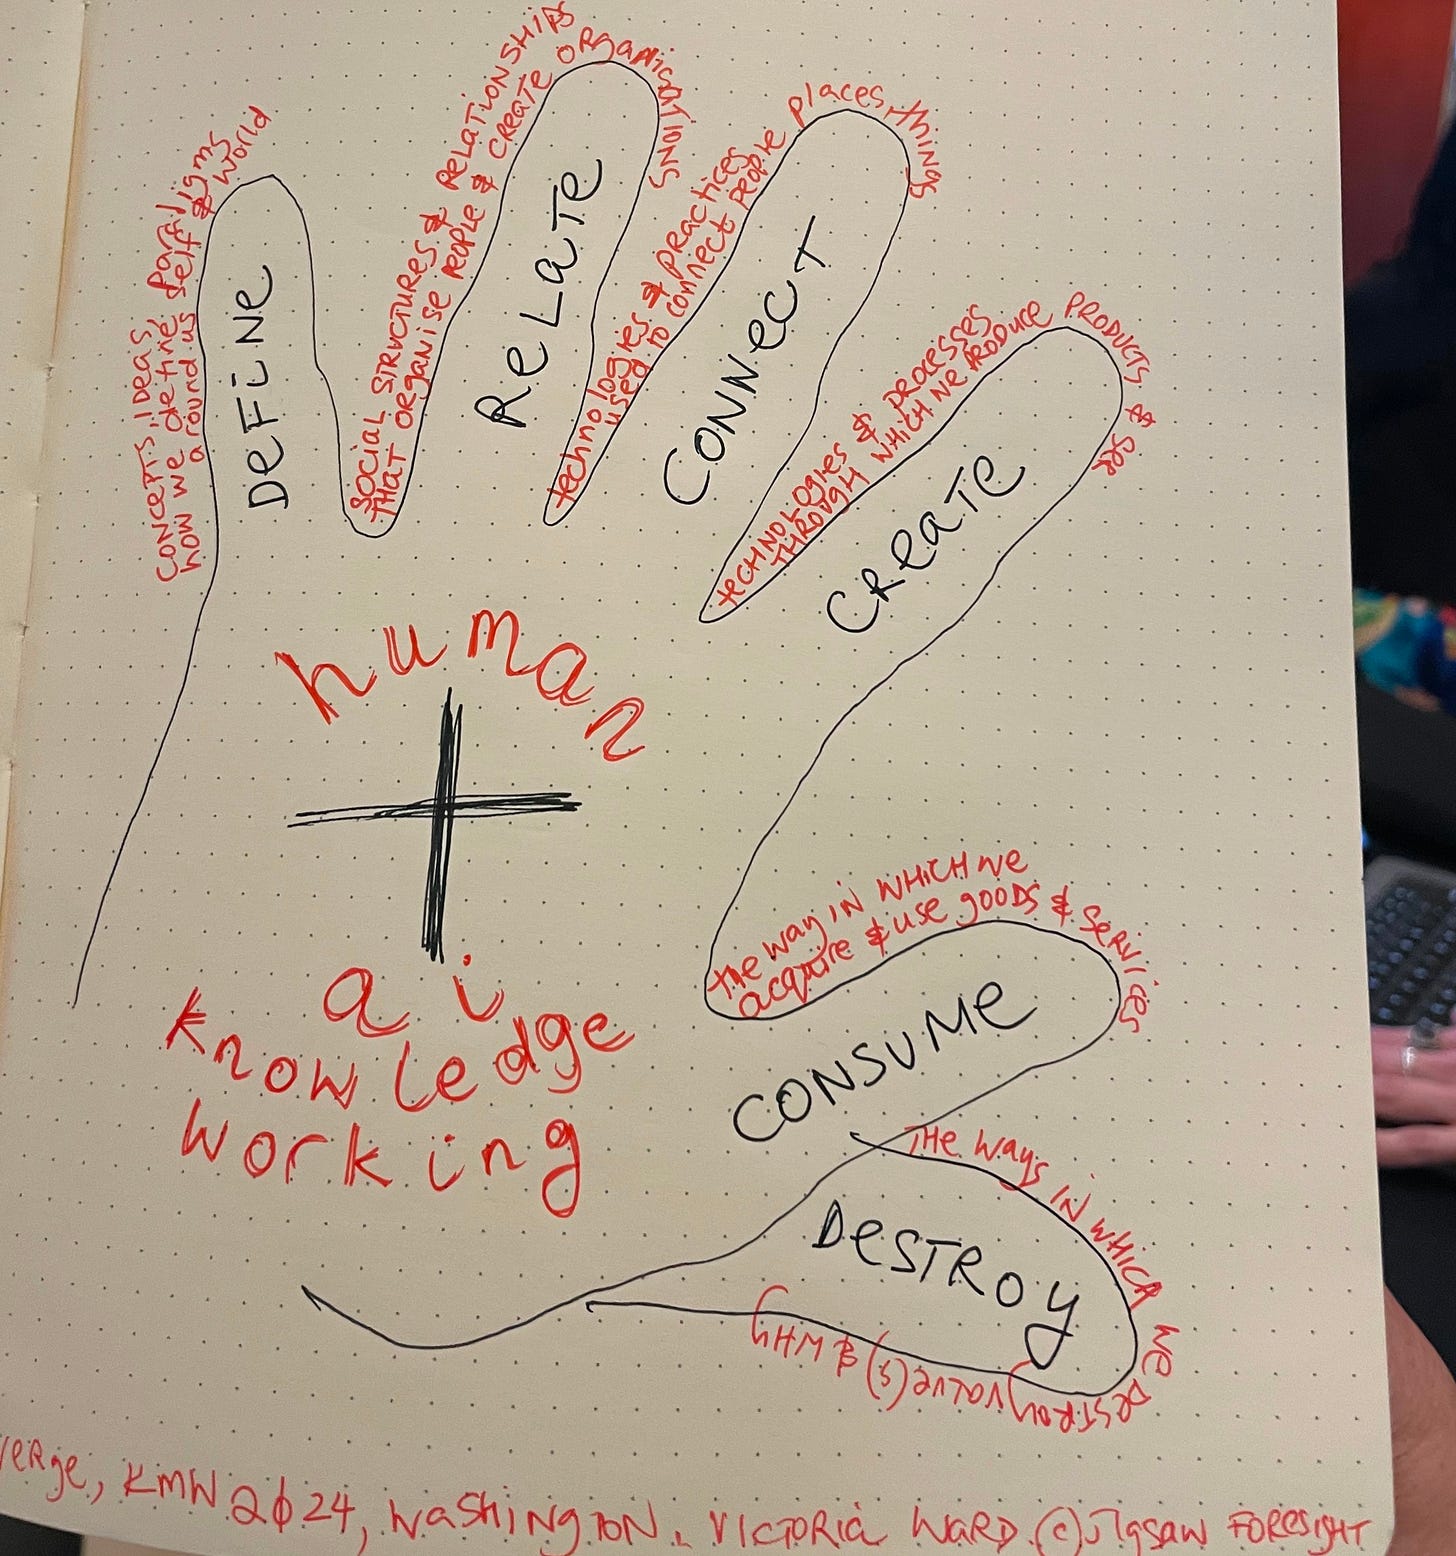 CONCEPTS, IDEAS, paradigms
how we define self & world
around us
DEFINE
SOCIAL STRUCTURES & RELATIONSHIPS
THAT ORGANISE PEOPLE & CREATE ORGANISATIONS
RELATE
technologies & practices
used to connect people places, things
CONNECT
TECHNOLOGIES & PROCESSES
THROUGH WHICH WE PRODUCE PRODUCTS &
CREATE
human
ai
knowledge
working
the way IN WHICH we
acquire & use goods & services
CONSUME
THE ways IN WHICH we DESTROY VALUE(S) & WHY
DESTROY
verge, KMW 2024, WASHINGTON. VICTORIA WARD (c) JIGSAW FORESIGHT